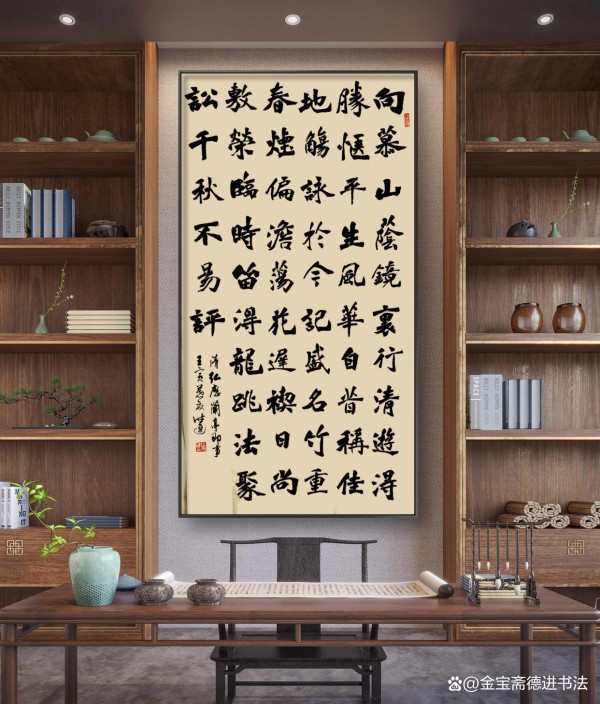 向慕山蔭鏡裏行清遊得
勝愜平生風華自昔稱佳
地觴詠於今記盛名竹重
春煙偏澹蕩花遲禊日尚
敷榮臨時笛得龍跳法聚
訟千秋不易評
清弘曆蘭亭即事
壬寅
@金宝斋德进书法